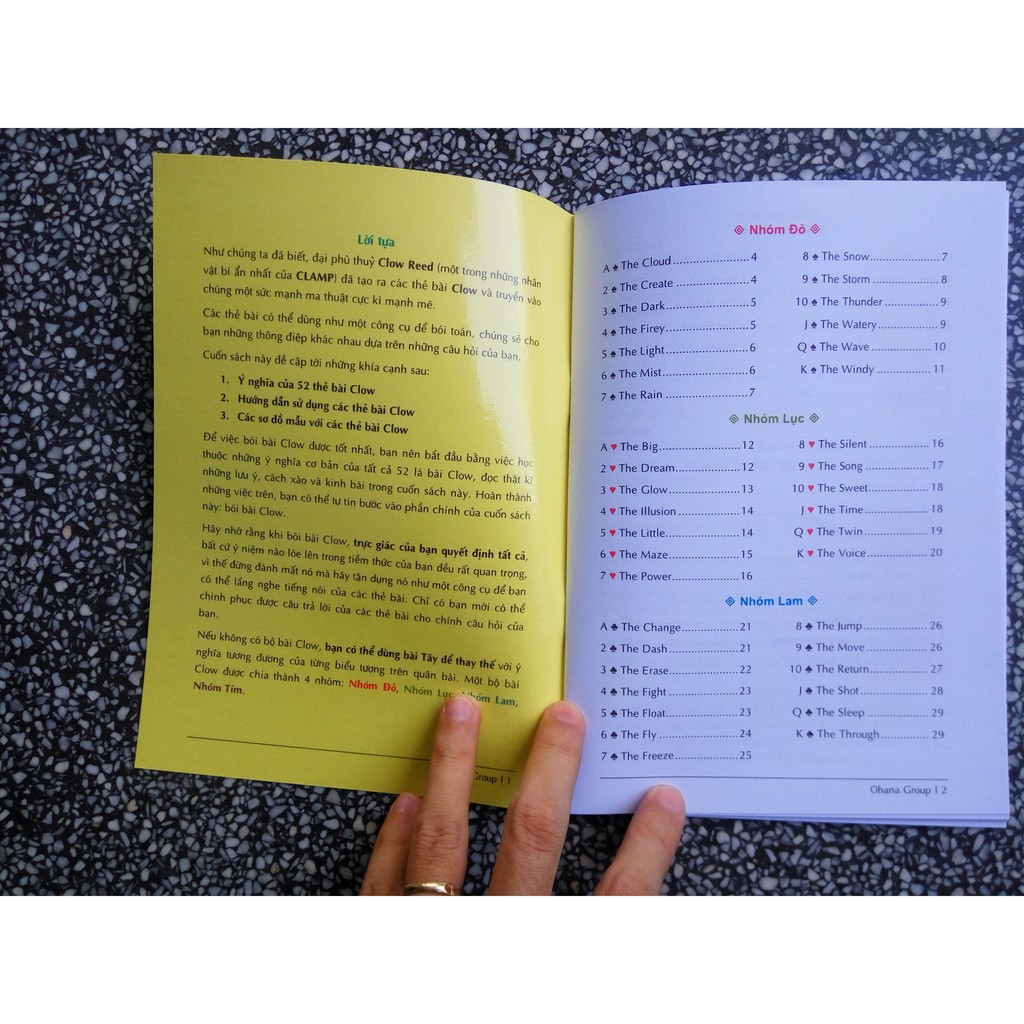 Lời tựa
Như chúng ta đã biết, đại phù thuỷ Clow Reed (một trong những nhân
vật bí ẩn nhất của CLAMP) đã tạo ra các thẻ bài Clow và truyền vào
chúng một sức mạnh ma thuật cực kì mạnh mẽ.
Các thẻ bài có thể dùng như một công cụ để bói toán, chúng sẽ cho
bạn những thông điệp khác nhau dựa trên những câu hỏi của bạn.
Cuốn sách này đề cập tới những khía cạnh sau:
1. Ý nghĩa của 52 thẻ bài Clow
2. Hướng dẫn sử dụng các thẻ bài Clow
3. Các sơ đồ mẫu với các thẻ bài Clow
Để việc bói bài Clow được tốt nhất, bạn nên bắt đầu bằng việc học
thuộc những ý nghĩa cơ bản của tất cả 52 lá bài Clow, đọc thật kĩ
những lưu ý, cách xào và kinh bài trong cuốn sách này. Hoàn thành
những việc trên, bạn có thể tự tin bước vào phần chính của cuốn sách
này: bói bài Clow.
Hãy nhớ rằng khi bói bài Clow, trực giác của bạn quyết định tất cả,
bất cứ ý niệm nào lóe lên trong tiềm thức của bạn đều rất quan trọng,
vì thế đừng đánh mất nó mà hãy tận dụng nó như một công cụ để bạn
có thể lắng nghe tiếng nói của các thẻ bài. Chỉ có bạn mới có thể
chinh phục được câu trả lời của các thẻ bài cho chính câu hỏi của
bạn.
Nếu không có bộ bài Clow, bạn có thể dùng bài Tây để thay thế với ý
nghĩa tương đương của từng biểu tượng trên quân bài. Một bộ bài
Clow được chia thành 4 nhóm: Nhóm Đỏ, Nhóm Lục, Nhóm Lam,
Nhóm Tím.
Group | 1
Nhóm Đỏ
A ♠ The Cloud ................... 4
2 ♠ The Create ................... 4
3 ♠ The Dark ..................... 5
4 ♠ The Firey ..................... 5
5 ♠ The Light ..................... 6
6 ♠ The Mist ..................... 6
7 ♠ The Rain ..................... 7
8 ♠ The Snow ................... 7
9 ♠ The Storm ................... 8
10 ♠ The Thunder ............... 9
J ♠ The Watery ................... 9
Q ♠ The Wave ................... 10
K ♠ The Windy ................... 11
Nhóm Lục
A ♥ The Big ..................... 12
2 ♥ The Dream ................... 12
3 ♥ The Glow ................... 13
4 ♥ The Illusion ................... 14
5 ♥ The Little ................... 14
6 ♥ The Maze ................... 15
7 ♥ The Power ................... 16
8 ♥ The Silent ................... 16
9 ♥ The Song ................... 17
10 ♥ The Sweet ................... 18
J ♥ The Time ................... 18
Q ♥ The Twin ................... 19
K ♥ The Voice ................... 20
Nhóm Lam
A ♣ The Change ................... 21
2 ♣ The Dash ................... 21
3 ♣ The Erase ................... 22
4 ♣ The Fight ................... 23
5 ♣ The Float ................... 23
6 ♣ The Fly ................... 24
7 ♣ The Freeze ................... 25
8 ♣ The Jump ................... 26
9 ♣ The Move ................... 26
10 ♣ The Return ................... 27
J ♣ The Shot ................... 28
Q ♣ The Sleep ................... 29
K ♣ The Through ................... 29
Ohana Group | 2